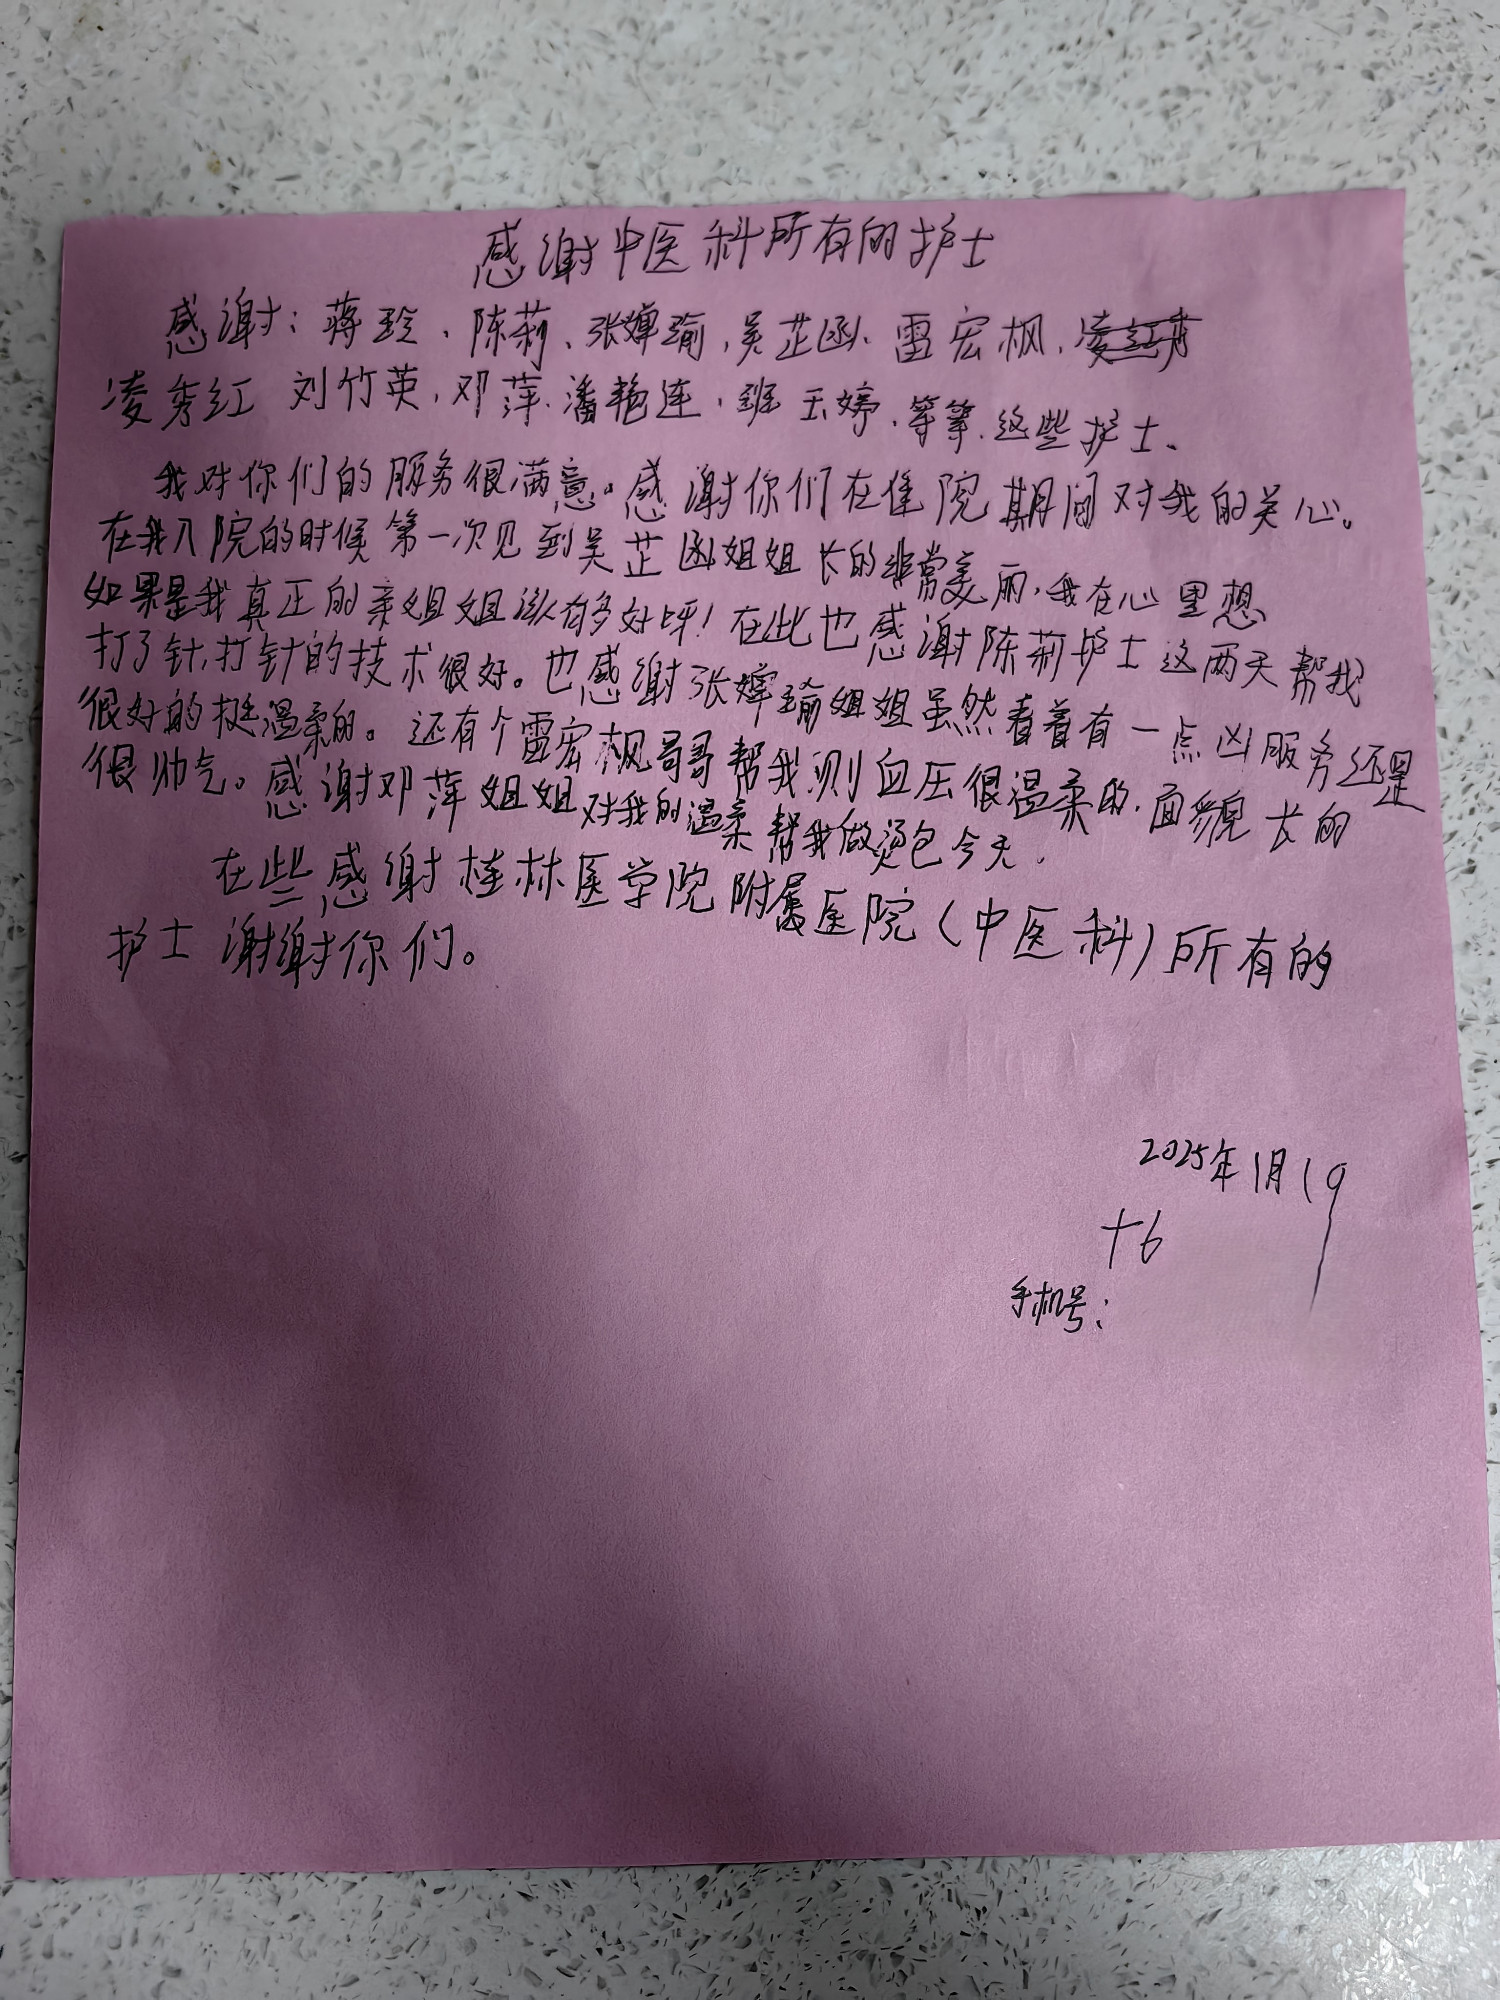 感谢中医科所有的护士
感谢：蒋玲、陈莉、张婵瑜，吴芷函、雷宏枫，
凌秀红 刘竹英，邓萍、潘艳连，班玉婷，等等，这些护士、
我对你们的服务很满意。感谢你们在住院期间对我的关心。
在我入院的时候第一次见到吴芷函姐姐长的非常美丽，我在心里想
如果是我真正的亲姐姐该有多好呀！在此也感谢陈莉护士这两天帮我
打了针，打针的技术很好。也感谢张婵瑜姐姐虽然看着有一点凶服务还是
很好的挺温柔的。还有个雷宏枫哥哥帮我测血压很温柔的，面貌长的
很帅气。感谢邓萍姐姐对我的温柔帮我做烫包今天，
在些感谢桂林医学院附属医院（中医科）所有的
护士谢谢你们。
2025年1月19
+6
手机号：